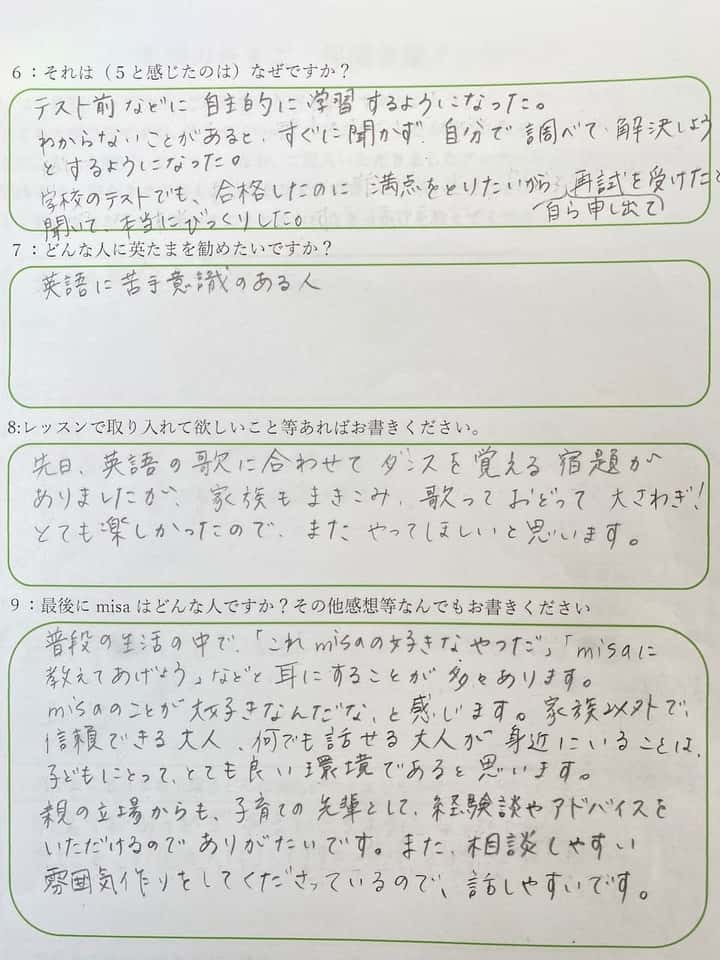 6：それは（5と感じたのは）なぜですか？
テスト前などに自主的に学習するようになった。
わからないことがあると、すぐに聞かず、自分で調べて、解決しよう
とするようになった。
学校のテストでも、合格したのに満点をとりたいから、再試を受けたと
聞いて、本当にびっくりした。
（自ら申し出て）
7：どんな人に英たまを勧めたいですか？
英語に苦手意識のある人
8:レッスンで取り入れて欲しいこと等あればお書きください。
先日、英語の歌に合わせてダンスを覚える宿題が
ありましたが、家族もまきこみ、歌っておどって大さわぎ！
とても楽しかったので、またやってほしいと思います。
9：最後に misa はどんな人ですか？その他感想等なんでもお書きください
普段の生活の中で、「これmisaの好きなやつだ」「misaに
教えてあげよう」などと耳にすることが多々あります。
misaのことが大好きなんだな、と感じます。家族以外で、
信頼できる大人、何でも話せる大人が身近にいることは、
子どもにとって、とても良い環境であると思います。
親の立場からも、子育ての先輩として、経験談やアドバイスを
いただけるのでありがたいです。また、相談しやすい
雰囲気作りをしてくださっているので、話しやすいです。